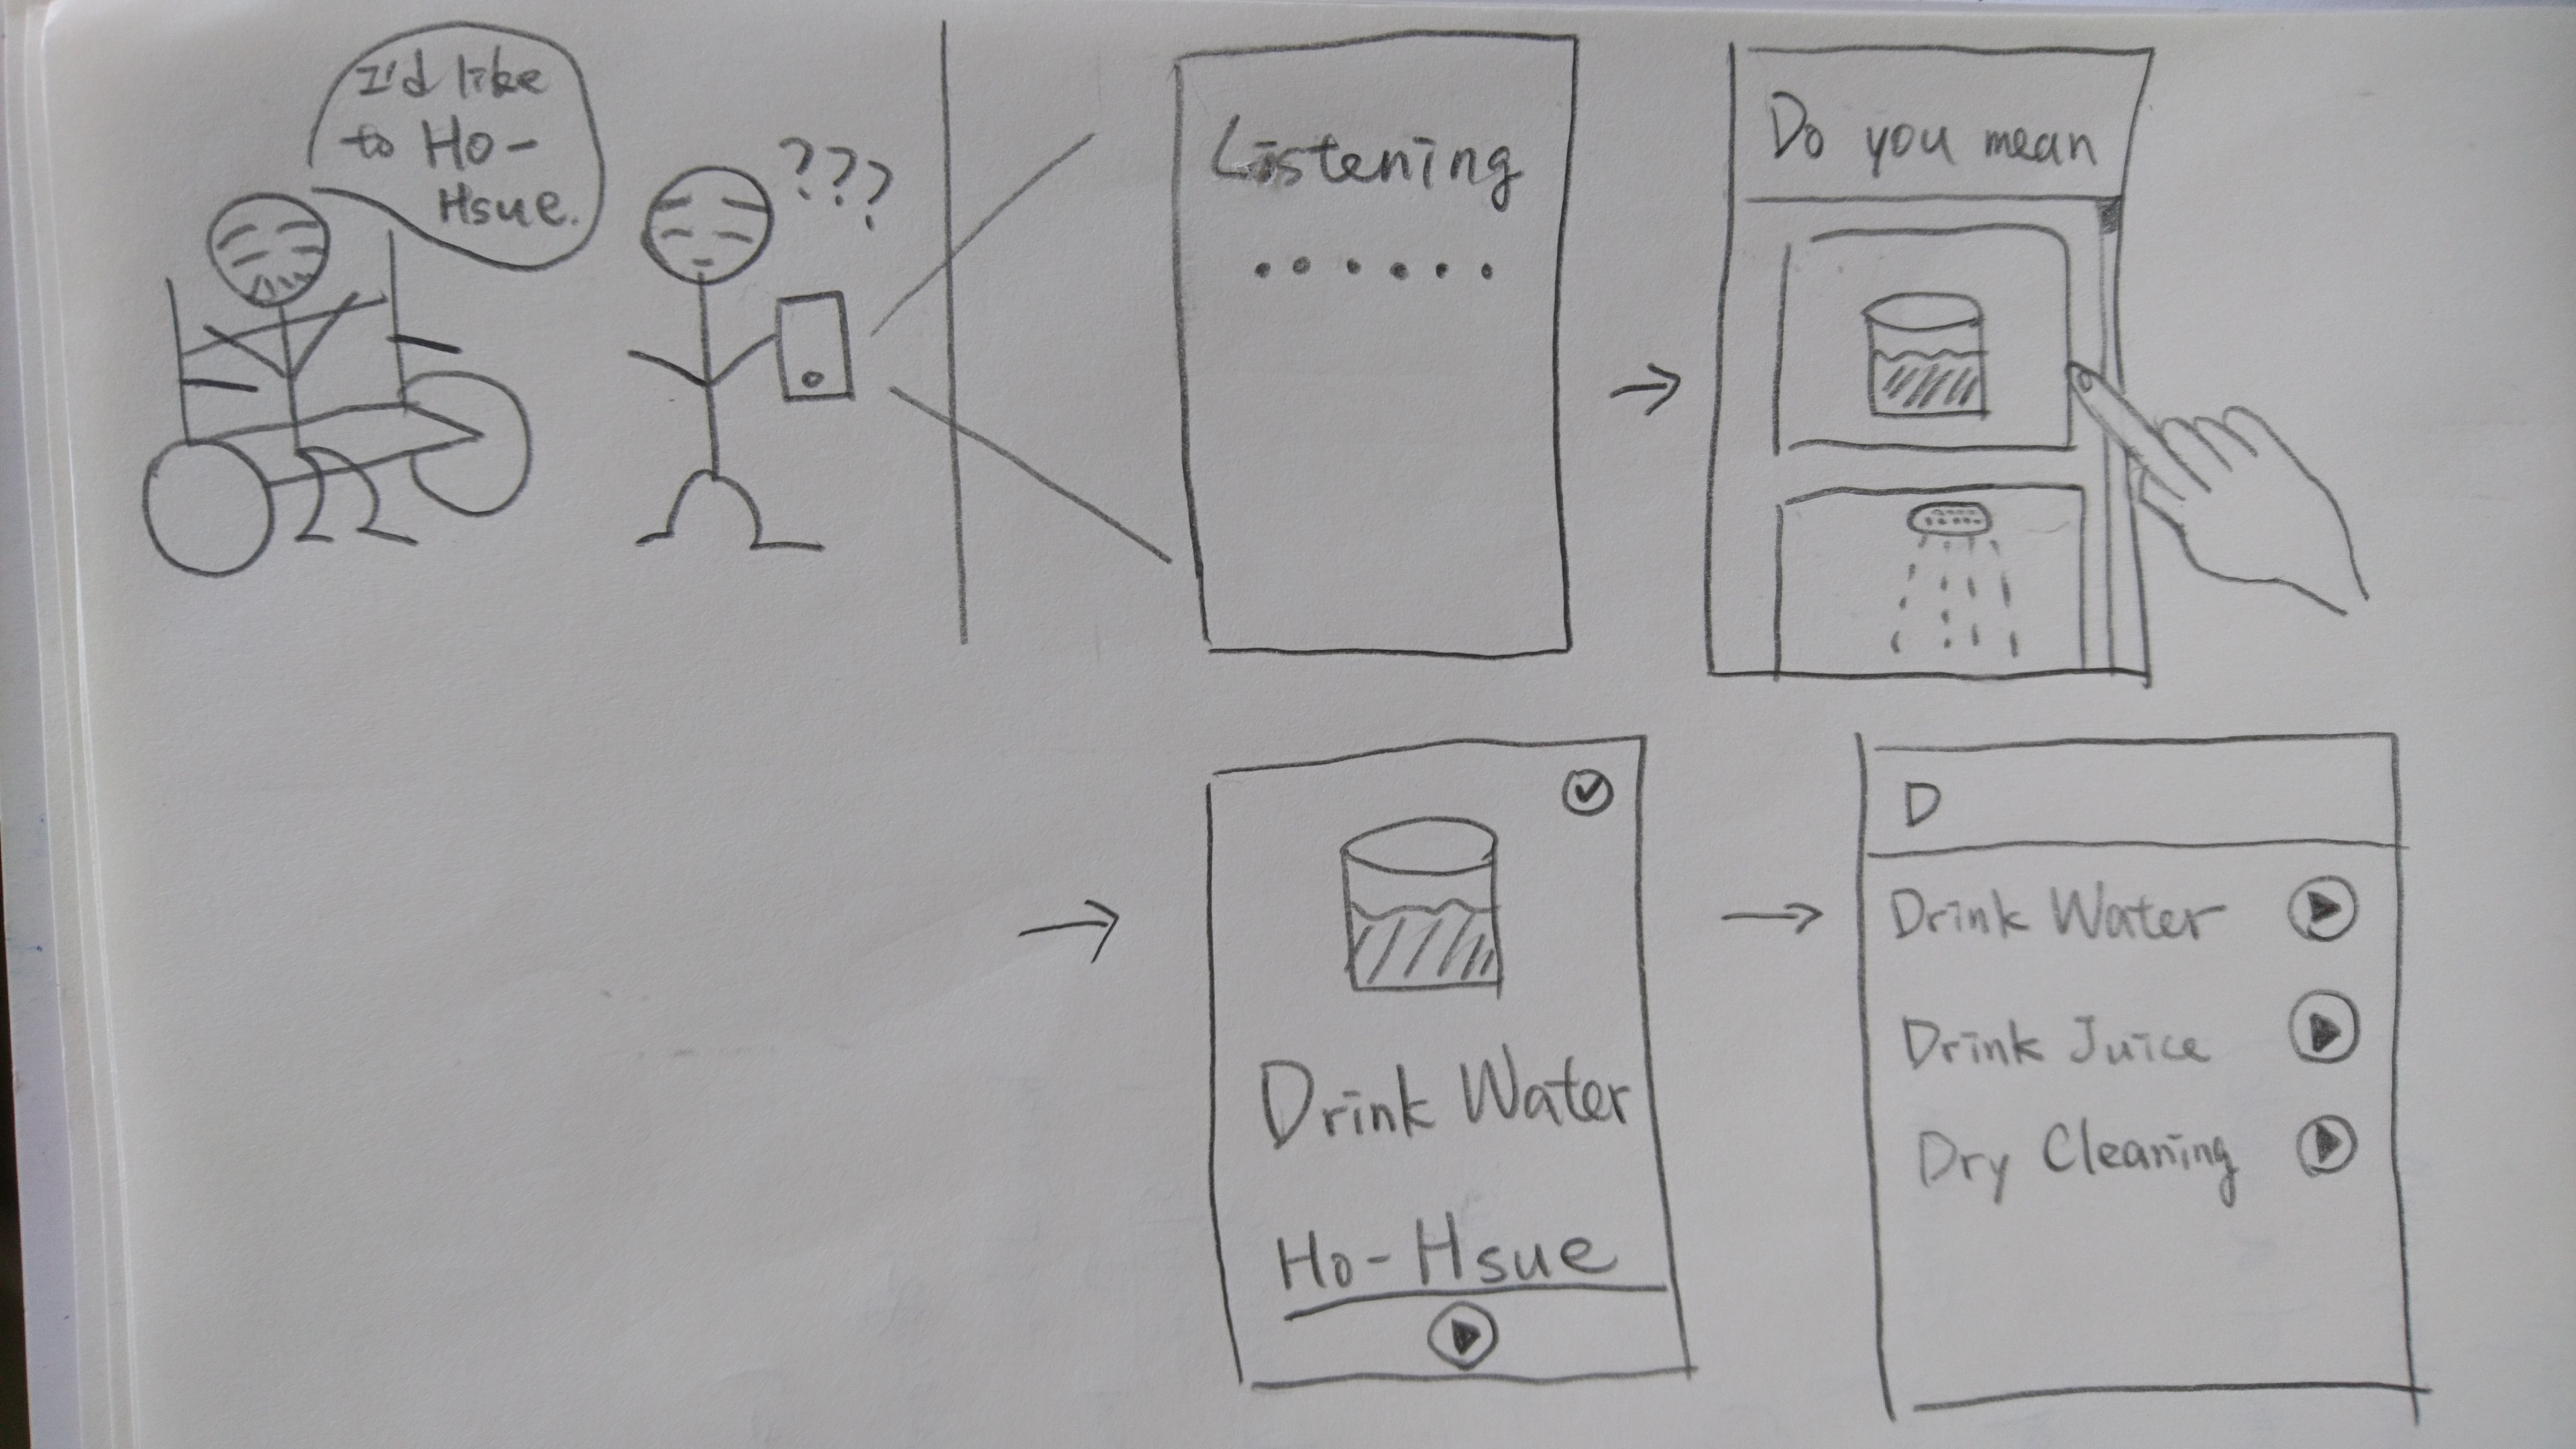 I'd like
to Ho-
Hsue.
???
Listening
......
Do you mean
Drink Water
Ho-Hsue
D
Drink Water
Drink Juice
Dry Cleaning